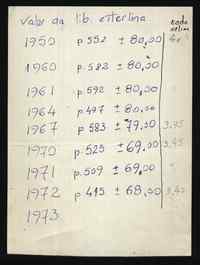 valor da lib. esterlina
1950 p. 552 ± 80,00
1960 p. 582 ± 80,00
1961 p. 592 ± 80,00
1964 p. 497 ± 80,00
1967 p. 583 ± 79,00 3,95
1970 p. 525 ± 69,00 3,45
1971 p. 509 ± 69,00 "
1972 p. 415 ± 68,00 3,40
1973